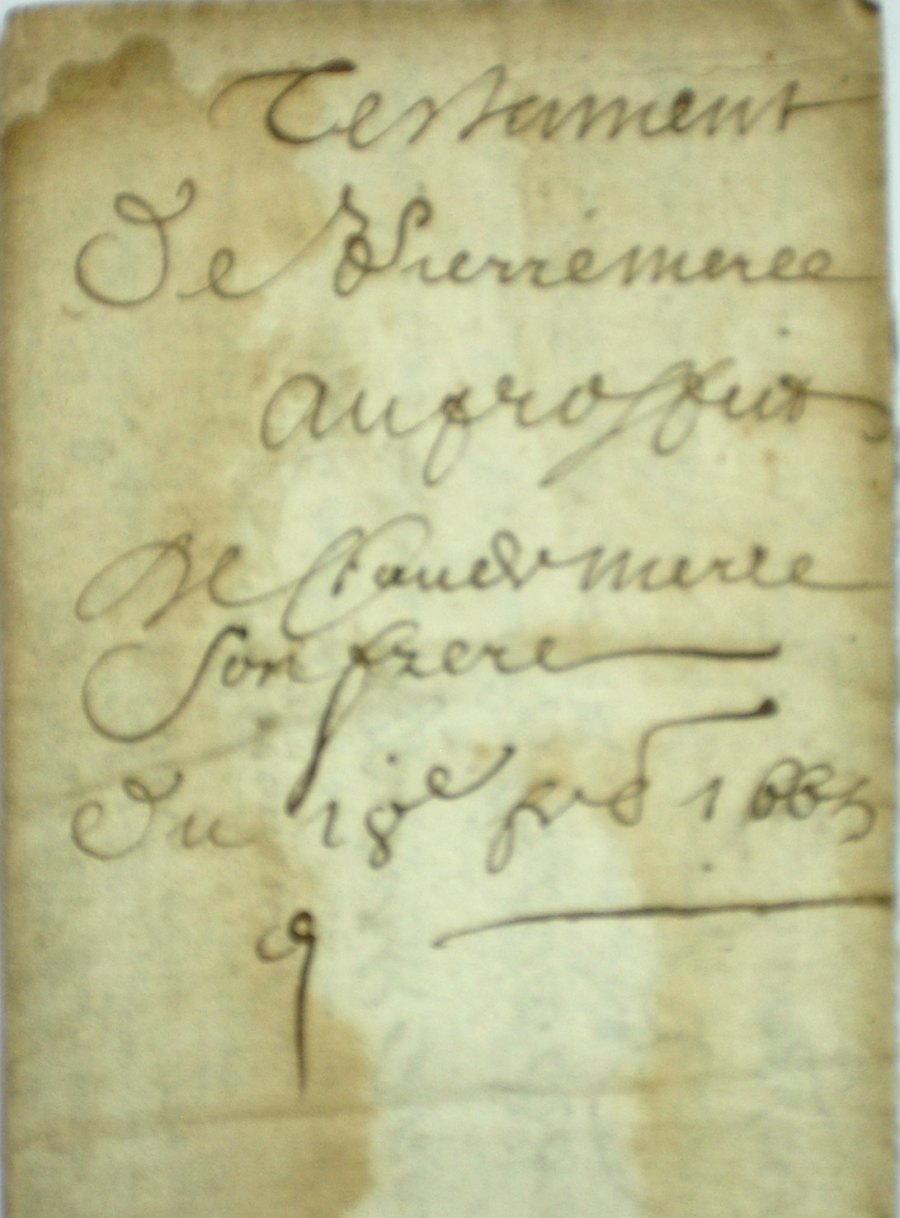 Testament
De Pierre meree
au proffict
De Claude meree
Son frere
Du 18e 1665